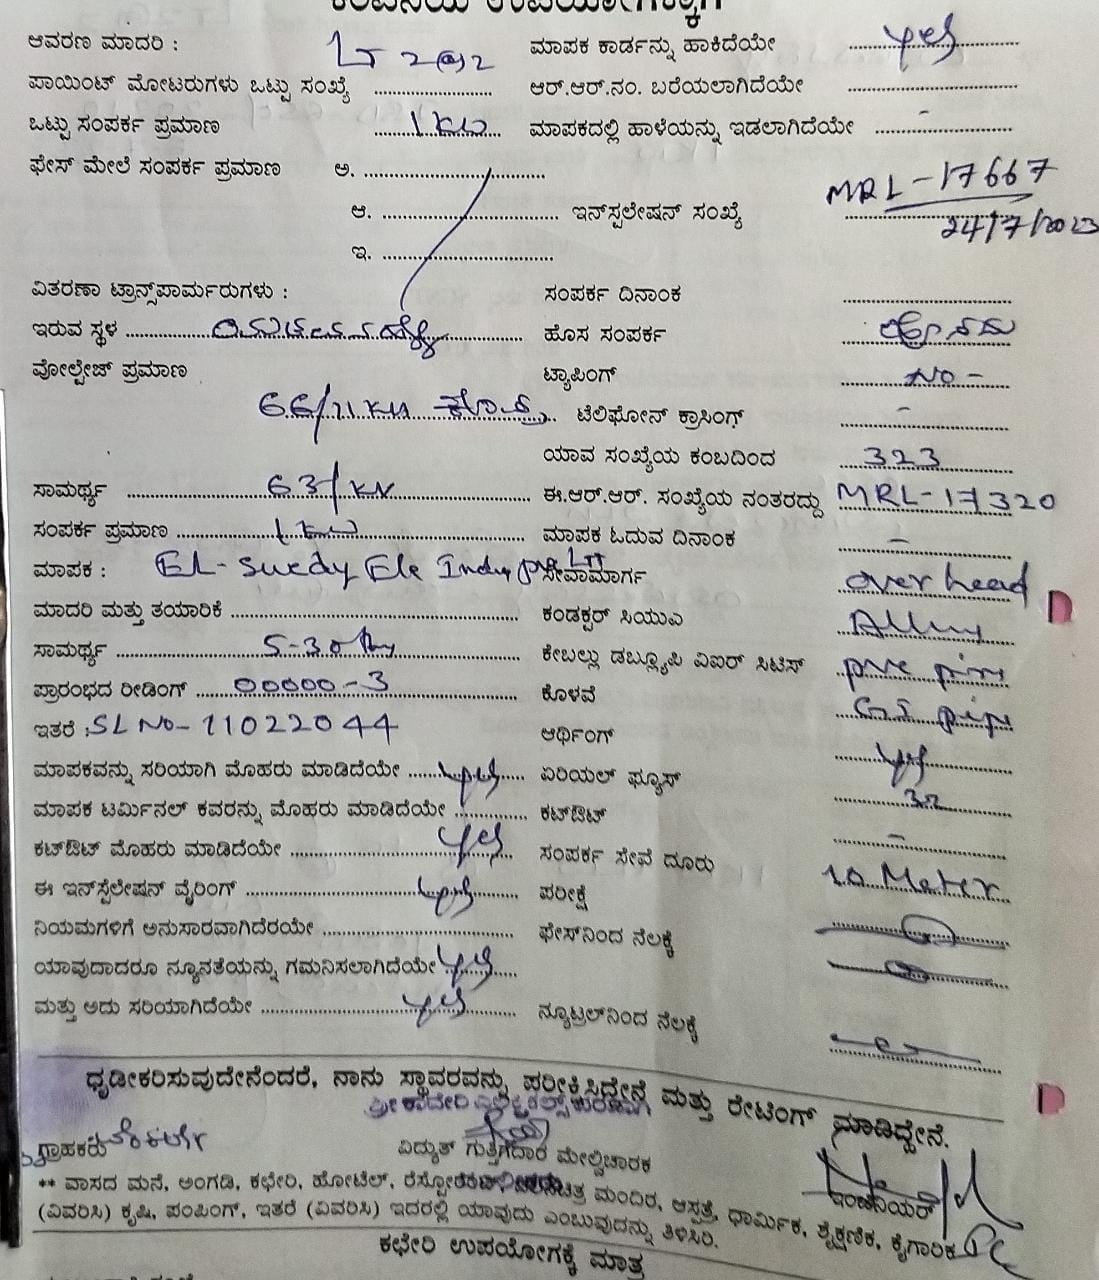 ಕಂಪನಿಯ ಉಪಯೋಗಕ್ಕಾಗಿ
ಆವರಣ ಮಾದರಿ : LT 2(a)2 ಮಾಪಕ ಕಾರ್ಡನ್ನು ಹಾಕಿದೆಯೇ yes
ಪಾಯಿಂಟ್ ಮೋಟರುಗಳು ಒಟ್ಟು ಸಂಖ್ಯೆ ಆರ್.ಆರ್.ನಂ. ಬರೆಯಲಾಗಿದೆಯೇ
ಒಟ್ಟು ಸಂಪರ್ಕ ಪ್ರಮಾಣ 1 KW ಮಾಪಕದಲ್ಲಿ ಹಾಳೆಯನ್ನು ಇಡಲಾಗಿದೆಯೇ -
ಫೇಸ್ ಮೇಲೆ ಸಂಪರ್ಕ ಪ್ರಮಾಣ ಅ.
ಆ. ಇನ್‌ಸ್ಪಲೇಷನ್ ಸಂಖ್ಯೆ MRL-17667
24/7/2023
ಇ.
ವಿತರಣಾ ಟ್ರಾನ್ಸ್‌ಪಾರ್ಮರುಗಳು : ಸಂಪರ್ಕ ದಿನಾಂಕ
ಇರುವ ಸ್ಥಳ ಹೊಸ ಸಂಪರ್ಕ ಹೊಸದು
ವೋಲ್ಟೇಜ್ ಪ್ರಮಾಣ ಟ್ಯಾಪಿಂಗ್ NO -
66/11 KV ಟೆಲಿಫೋನ್ ಕ್ರಾಸಿಂಗ್ -
ಯಾವ ಸಂಖ್ಯೆಯ ಕಂಬದಿಂದ 323
ಸಾಮರ್ಥ್ಯ 63/KV ಈ.ಆರ್.ಆರ್. ಸಂಖ್ಯೆಯ ನಂತರದ್ದು MRL-17320
ಸಂಪರ್ಕ ಪ್ರಮಾಣ 1 KW ಮಾಪಕ ಓದುವ ದಿನಾಂಕ -
ಮಾಪಕ : EL-Swedy Ele Indu pve LTT ಸೇವಾಮಾರ್ಗ over head
ಮಾದರಿ ಮತ್ತು ತಯಾರಿಕೆ ಕಂಡಕ್ಟರ್ ಸಿಯುಎ
ಸಾಮರ್ಥ್ಯ 5-30 ಕೇಬಲ್ಲು ಡಬ್ಲ್ಯೂಪಿ ಎಐಆರ್ ಸಿಟಿಸ್ pvc
ಪ್ರಾರಂಭದ ರೀಡಿಂಗ್ 00000-3 ಕೊಳವೆ GI pipe
ಇತರೆ : SL No-11022044 ಆರ್ಥಿಂಗ್ yes
ಮಾಪಕವನ್ನು ಸರಿಯಾಗಿ ಮೊಹರು ಮಾಡಿದೆಯೇ yes ಏರಿಯಲ್ ಫ್ಯೂಸ್ 32
ಮಾಪಕ ಟರ್ಮಿನಲ್ ಕವರನ್ನು ಮೊಹರು ಮಾಡಿದೆಯೇ ಕಟ್‌ಔಟ್ -
ಕಟ್‌ಔಟ್ ಮೊಹರು ಮಾಡಿದೆಯೇ yes ಸಂಪರ್ಕ ಸೇವೆ ದೂರು 10 Meter
ಈ ಇನ್‌ಸ್ಪೆಲೇಷನ್ ವೈರಿಂಗ್ yes ಪರೀಕ್ಷೆ
ನಿಯಮಗಳಿಗೆ ಅನುಸಾರವಾಗಿದೆರಯೇ ಫೇಸ್‌ನಿಂದ ನೆಲಕ್ಕೆ
ಯಾವುದಾದರೂ ನ್ಯೂನತೆಯನ್ನು ಗಮನಿಸಲಾಗಿದೆಯೇ yes
ಮತ್ತು ಅದು ಸರಿಯಾಗಿದೆಯೇ yes ನ್ಯೂಟ್ರಲ್‌ನಿಂದ ನೆಲಕ್ಕೆ
ಧೃಡೀಕರಿಸುವುದೇನೆಂದರೆ, ನಾನು ಸ್ಥಾವರವನ್ನು ಪರೀಕ್ಷಿಸಿದ್ದೇನೆ ಮತ್ತು ರೇಟಿಂಗ್ ಮಾಡಿದ್ದೇನೆ.
ಗ್ರಾಹಕರು ವಿದ್ಯುತ್ ಗುತ್ತಿಗೆದಾರ ಮೇಲ್ವಿಚಾರಕ ಇಂಜಿನಿಯರ್
** ವಾಸದ ಮನೆ, ಅಂಗಡಿ, ಕಛೇರಿ, ಹೋಟೆಲ್, ಮಂದಿರ, ಆಸ್ಪತ್ರೆ, ಧಾರ್ಮಿಕ, ಶೈಕ್ಷಣಿಕ, ಕೈಗಾರಿಕ
(ವಿವರಿಸಿ) ಕೃಷಿ, ಪಂಪಿಂಗ್, ಇತರೆ (ವಿವರಿಸಿ) ಇದರಲ್ಲಿ ಯಾವುದು ಎಂಬುವುದನ್ನು ತಿಳಿಸಿರಿ.
ಕಛೇರಿ ಉಪಯೋಗಕ್ಕೆ ಮಾತ್ರ